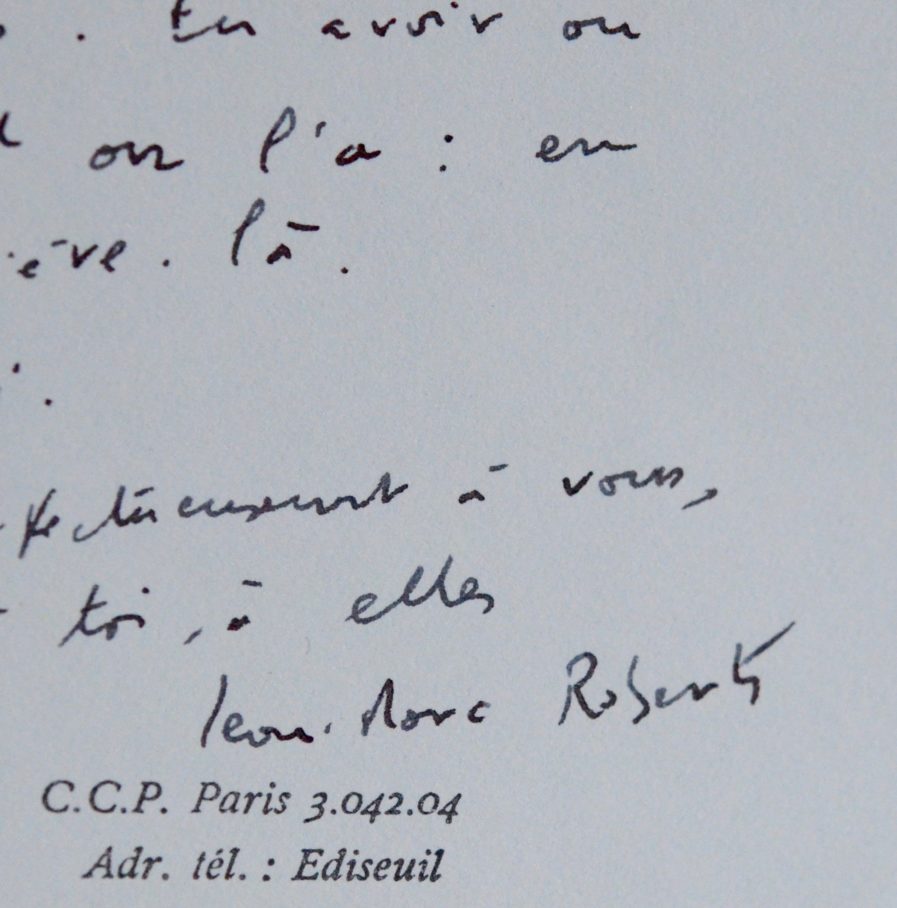 . En avoir ou
on l'a : en
ève. là.
affectueusement à vous,
toi, à elles
Jean-Marc Roberts
C.C.P. Paris 3.042.04
Adr. tél. : Ediseuil